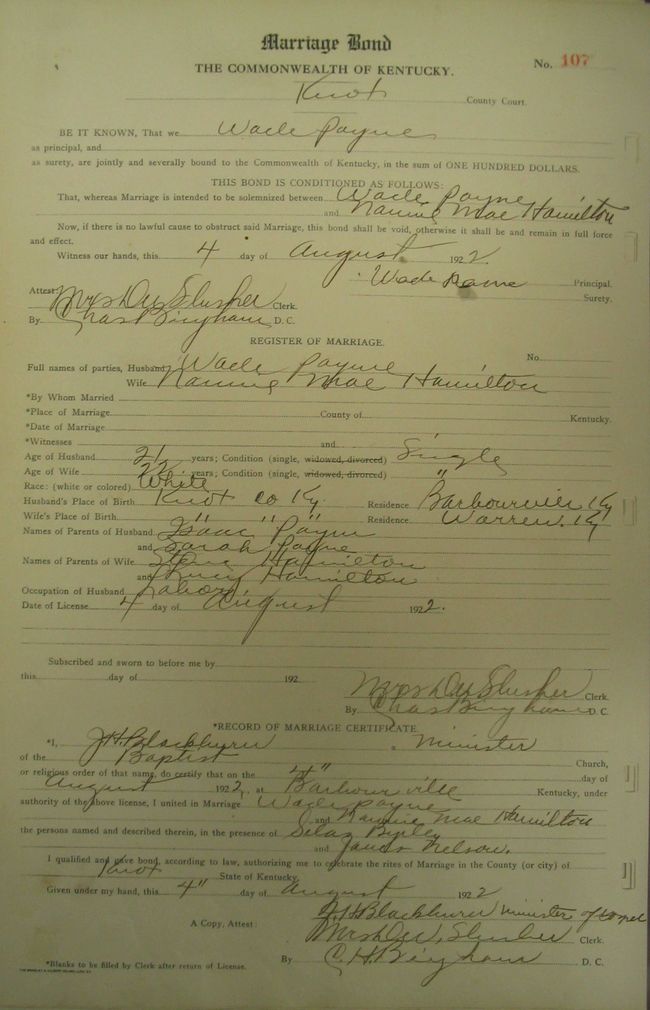 Marriage Bond
THE COMMONWEALTH OF KENTUCKY.
No. 107
Knox County Court.
BE IT KNOWN, That we Wade Payne
as principal, and
as surety, are jointly and severally bound to the Commonwealth of Kentucky, in the sum of ONE HUNDRED DOLLARS.
THIS BOND IS CONDITIONED AS FOLLOWS:
That, whereas Marriage is intended to be solemnized between Wade Payne
and Nannie Mae Hamilton
Now, if there is no lawful cause to obstruct said Marriage, this bond shall be void, otherwise it shall be and remain in full force
and effect.
Witness our hands, this 4 day of August 1922.
Wade Payne Principal.
Surety.
Attest: Mrs. D W Slusher Clerk.
By Chas Bingham D. C.
REGISTER OF MARRIAGE.
No.
Full names of parties, Husband Wade Payne
Wife Nannie Mae Hamilton
*By Whom Married
*Place of Marriage County of Kentucky.
*Date of Marriage
*Witnesses and
Age of Husband 21 years; Condition (single, widowed, divorced) Single
Age of Wife 22 years; Condition (single, widowed, divorced) "
Race: (white or colored) White
Husband's Place of Birth Knox Co Ky Residence Barbourville Ky
Wife's Place of Birth " " " Residence Warren. Ky
Names of Parents of Husband Isaac Payne
and Sarah Payne
Names of Parents of Wife Hamilton
and Hamilton
Occupation of Husband Labor
Date of License 4 day of August 1922.
Subscribed and sworn to before me by
this day of 192
Mrs D W Slusher Clerk.
By Chas Bingham D. C.
*RECORD OF MARRIAGE CERTIFICATE.
*I, J. H. Blackburn a Minister
of the Baptist Church,
or religious order of that name, do certify that on the 4" day of
August 1922, at Barbourville Kentucky, under
authority of the above license, I united in Marriage Wade Payne
and Nannie Mae Hamilton
the persons named and described therein, in the presence of
and Nelson.
I qualified and gave bond, according to law, authorizing me to celebrate the rites of Marriage in the County (or city) of
Knox State of Kentucky.
Given under my hand, this 4" day of August 1922
J H Blackburn Minister of Gospel
A Copy, Attest: Mrs D W. Slusher Clerk.
By C. H. Bingham D. C.
*Blanks to be filled by Clerk after return of License.